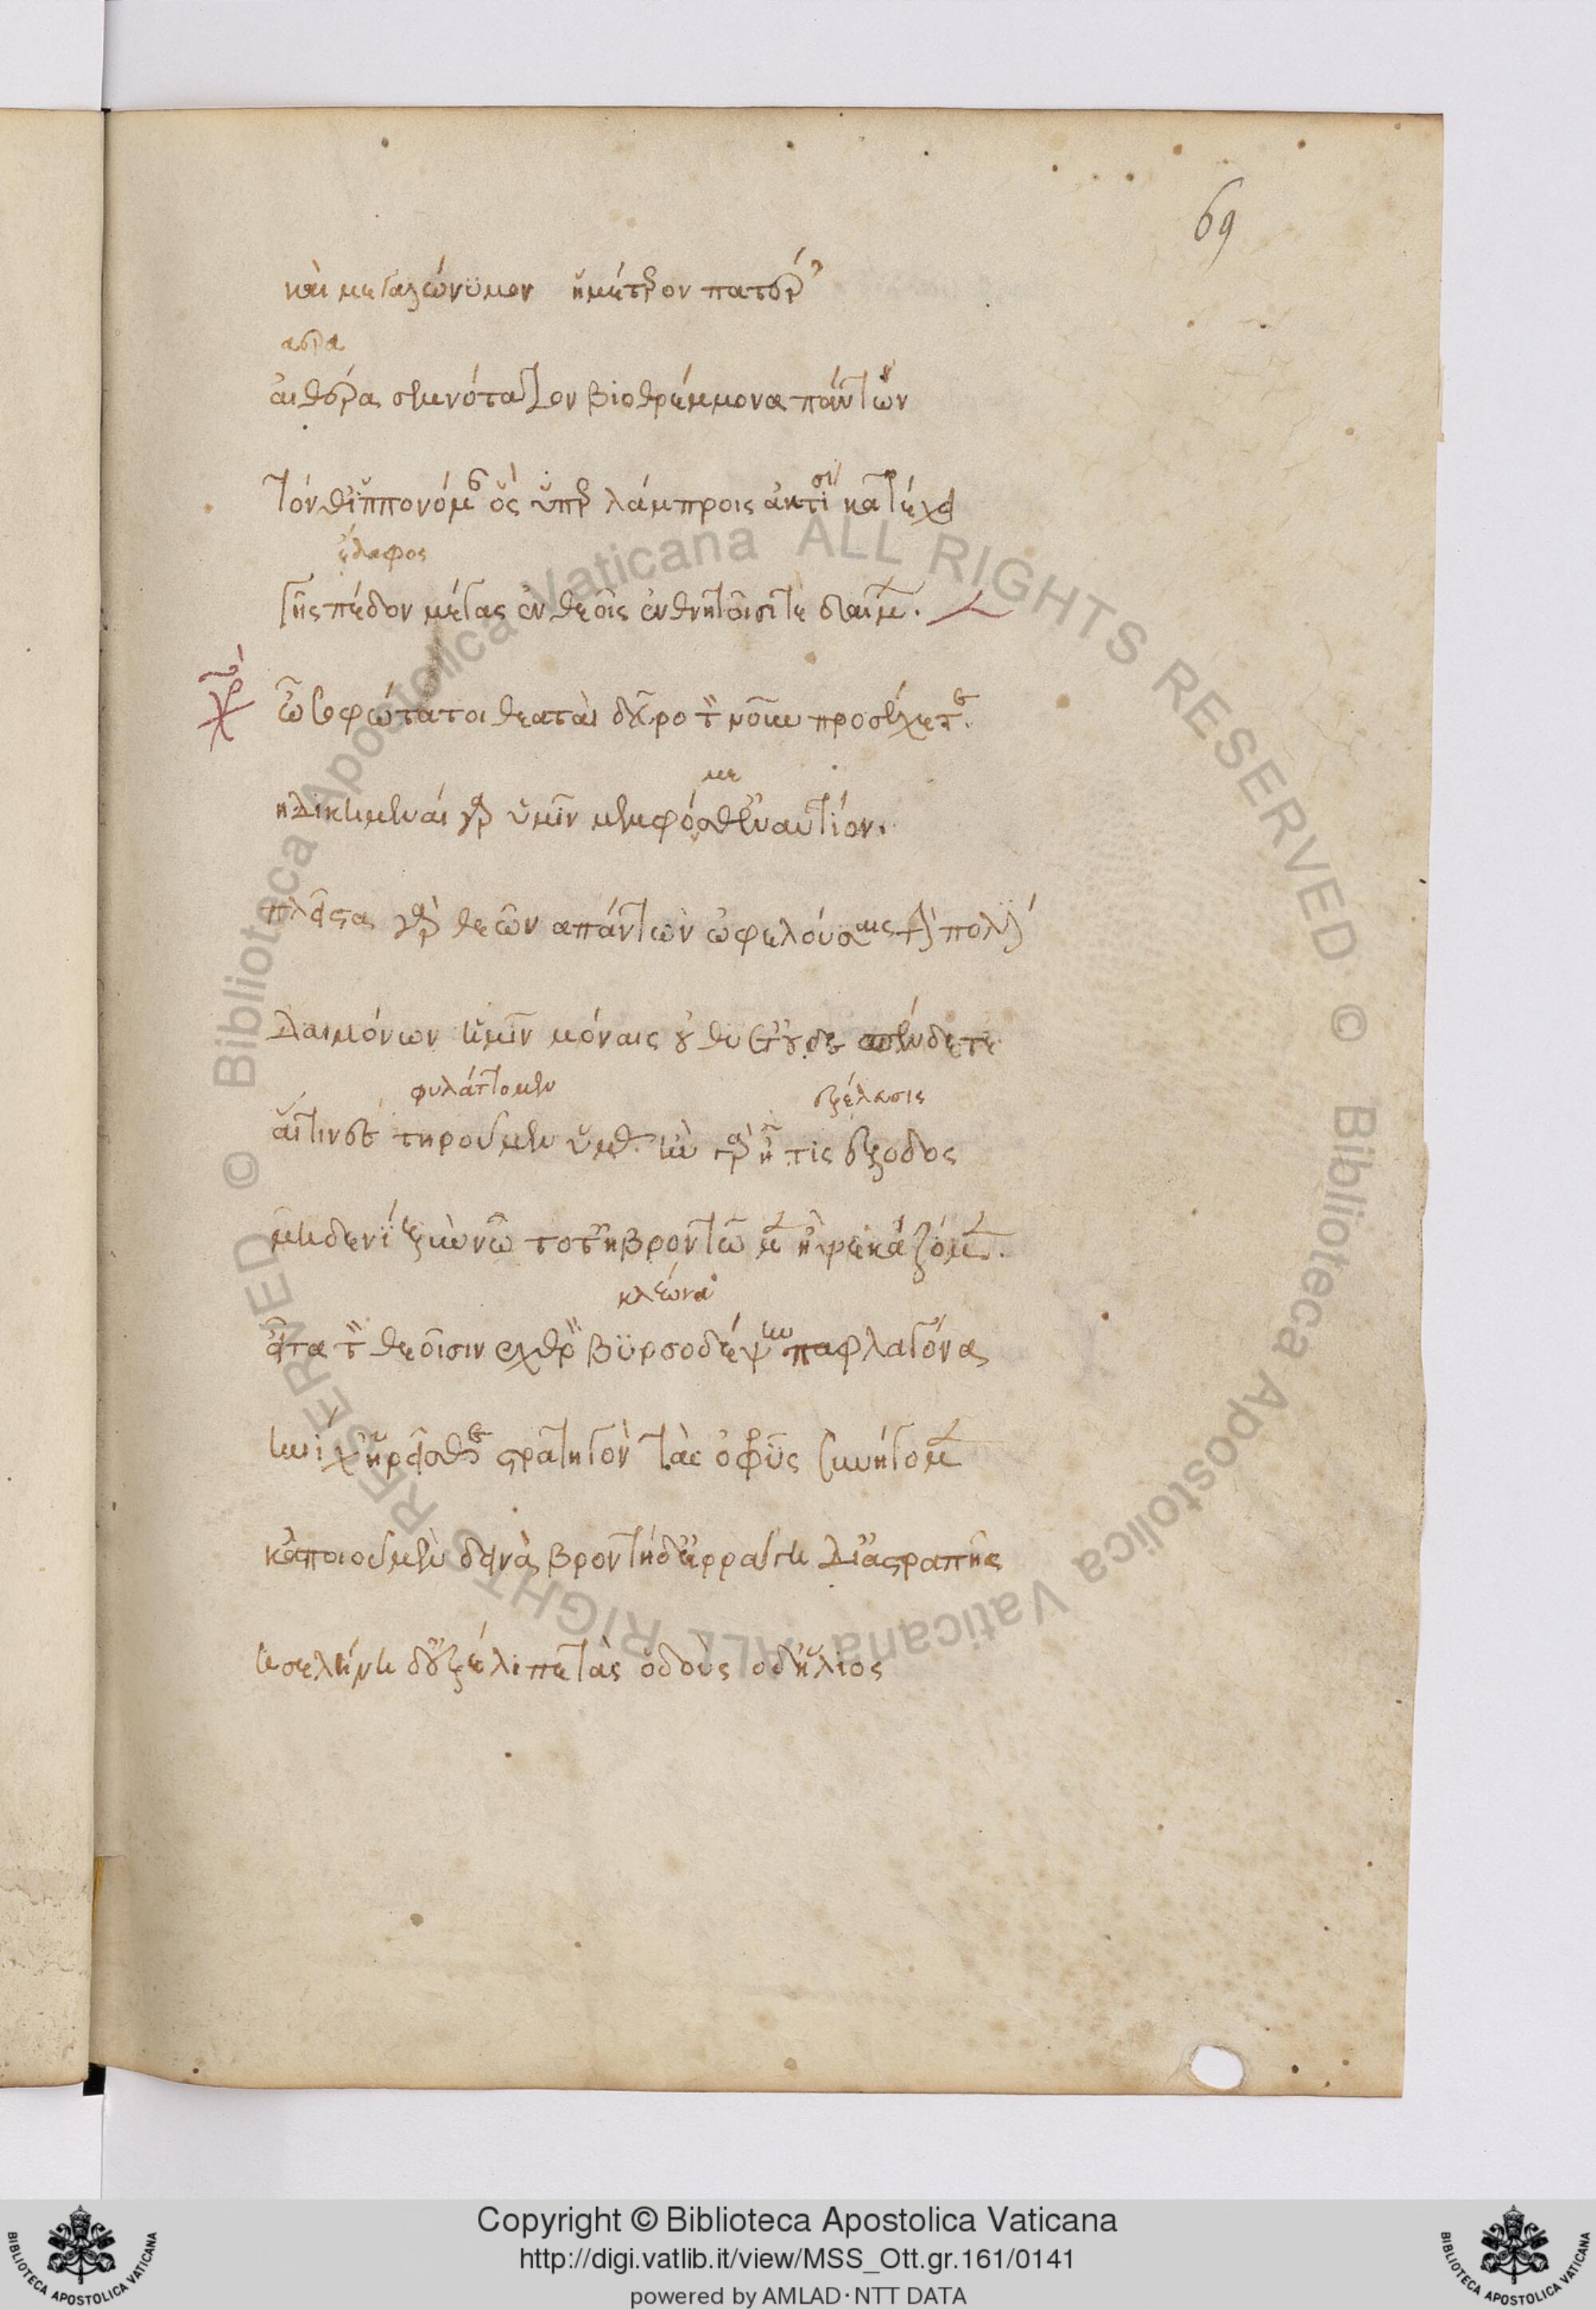 69
καὶ μεγαλώνυμον ἡμέτερον πατέρ’
αέρα
αἰθέρα σεμνότατον βιοθρέμμονα πάντων
τόν θ’ ἱππονόμαν ὃς ὑπερλάμπροις ἀκτῖσιν κατέχει
ἔδαφος
γῆς πέδον μέγας ἐν θεοῖς ἐν θνητοῖσί τε δαίμων.
ὦ σοφώτατοι θεαταὶ δεῦρο τὸν νοῦν προσέχετε.
με
ἠδικημέναι γὰρ ὑμῖν μεμφόσθ’ ἐναντίον.
πλεῖστα γὰρ θεῶν ἁπάντων ὠφελούσαις τὴν πόλιν
δαιμόνων ἡμῖν μόναις οὐ θύετ’ οὐδὲ σπένδετε
φυλάττομεν ἐξέλασις
αἵτινες τηροῦμεν ὑμᾶς ἢν γὰρ ᾖ τις ἔξοδος
μηδενὶ ξὺν νῷ τότ’ ἢ βροντῶμεν ἢ ψεκάζομεν.
κλέωνα
εἶτα τὸν θεοῖσιν ἐχθρὸν βυρσοδέψην παφλαγόνα
ἡνίχ’ ᾑρεῖσθε στρατηγὸν τὰς ὀφρῦς συνήγομεν
κἀποιοῦμεν δεινὰ βροντὴ δ’ ἐρράγη δι’ ἀστραπῆς
ἡ σελήνη δ’ ἐξέλιπε τὰς ὁδοὺς ὁ δ’ ἥλιος
Copyright © Biblioteca Apostolica Vaticana
http://digi.vatlib.it/view/MSS_Ott.gr.161/0141
powered by AMLAD·NTT DATA
BIBLIOTECA APOSTOLICA VATICANA
BIBLIOTECA APOSTOLICA VATICANA
© Biblioteca Apostolica Vaticana ALL RIGHTS RESERVED © Biblioteca Apostolica Vaticana ALL RIGHTS RESERVED